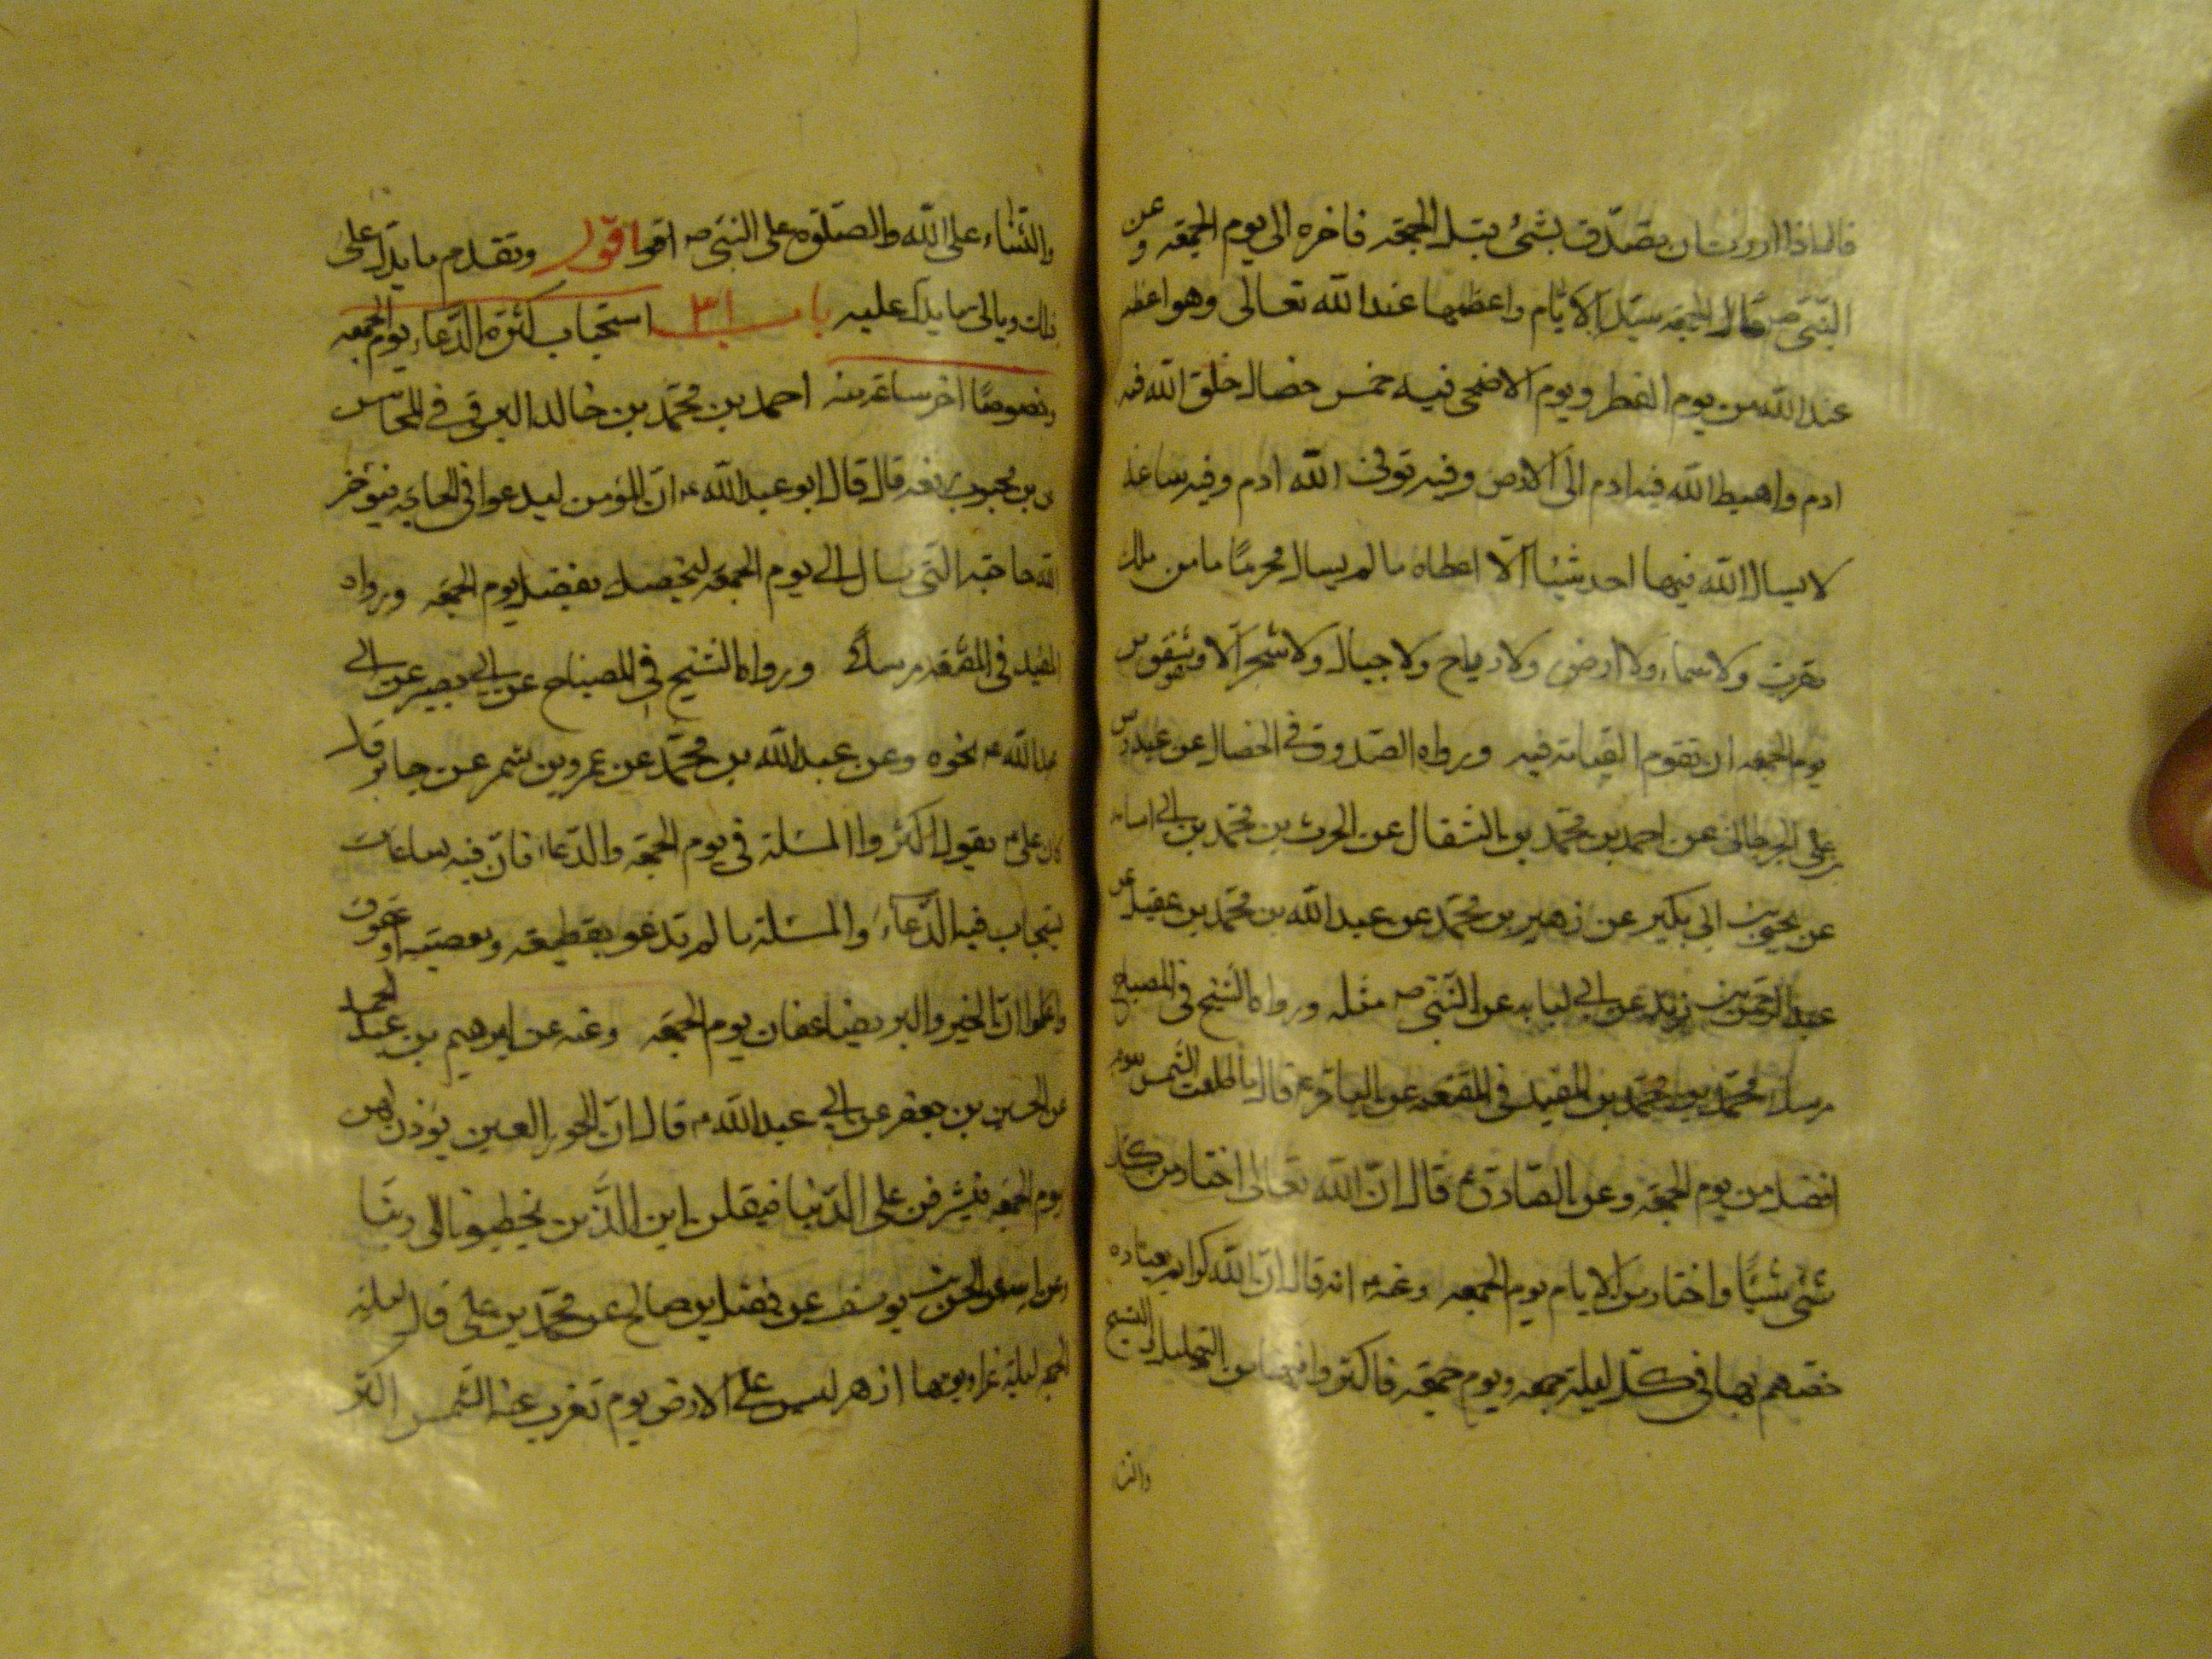 قال اذا اردت ان تصدق بشئ قبل الجمعه فاخره الى يوم الجمعه وعن
النبي ص قال الجمعه سيد الايام واعظمها عند الله تعالى وهو اعظم
عند الله من يوم الفطر ويوم الاضحى فيه خمس خصال خلق الله فيه
ادم واهبط الله فيه ادم الى الارض وفيه توفى الله ادم وفيه ساعة
لا يسال الله فيها احد شيئا الا اعطاه ما لم يسال محرما ما من ملك
مقرب ولا سماء ولا ارض ولا رياح ولا جبال ولا شجر الا وشفقون من
يوم الجمعه ان تقوم القيامة فيه ورواه الصدوق في الخصال عن عبدوس
بن علي الجرجاني عن احمد بن محمد بن الشقال عن الحرث بن محمد بن ابي اسامه
عن يحيى بن ابي بكير عن زهير بن محمد عن عبد الله بن محمد بن عقيل عن
عبد الرحمن بن زيد عن ابي لبابه عن النبي ص مثله ورواه الشيخ في المصباح
مرسلا محمد بن محمد بن المفيد في المقنعه عن الباقر ع قال ما طلعت الشمس بيوم
افضل من يوم الجمعه وعن الصادق ع قال ان الله تعالى اختار من كل
شئ شيئا واختار من الايام يوم الجمعه وعنه ع انه قال ان الله كرايم بعباده
خصهم بها في كل ليلة جمعه ويوم جمعه فاكثروا فيهما من التهليل والتسبيح
والثنا
والثناء على الله والصلوة على النبي ص اقول وتقدم ما يدل على
ذلك وياتى ما يدل عليه باب ٣١ استحباب كثرة الدعاء يوم الجمعه
وخصوصا اخر ساعة منه احمد بن محمد بن خالد البرقي في المحاسن
عن بن محبوب رفعه قال قال ابو عبد الله ع ان المؤمن ليدعوا في الحاجة فيؤخر
الله حاجته التى سال الى يوم الجمعه ليخصه بفضل يوم الجمعه ورواه
المفيد في المقنعه مرسلا ورواه الشيخ في المصباح عن ابي بصير عن ابي
عبد الله ع نحوه وعن عبد الله بن محمد عن عمرو بن شمر عن جابر قال
كان علي ع يقول اكثروا المسئلة في يوم الجمعه والدعاء فان فيه ساعات
يستجاب فيه الدعاء والمسئلة ما لم تدعو بقطيعه ومعصيه او عقوق
واعلموا ان الخير والبر يضاعفان يوم الجمعه وعنه عن ابرهيم بن عبد الحميد
عن الحسين بن جعفر عن ابي عبد الله ع قال ان الحور العين يؤذن لهن
يوم الجمعه فيشرفن على الدنيا فيقلن اين الذين يخطبونا الى ربنا
وعن ابيه عن الحسن بن يوسف عن مفضل بن صالح عن محمد بن علي قال ليلة
الجمعه ليلة غراء ويومها ازهر ليس على الارض يوم تغرب عنه الشمس اكثر